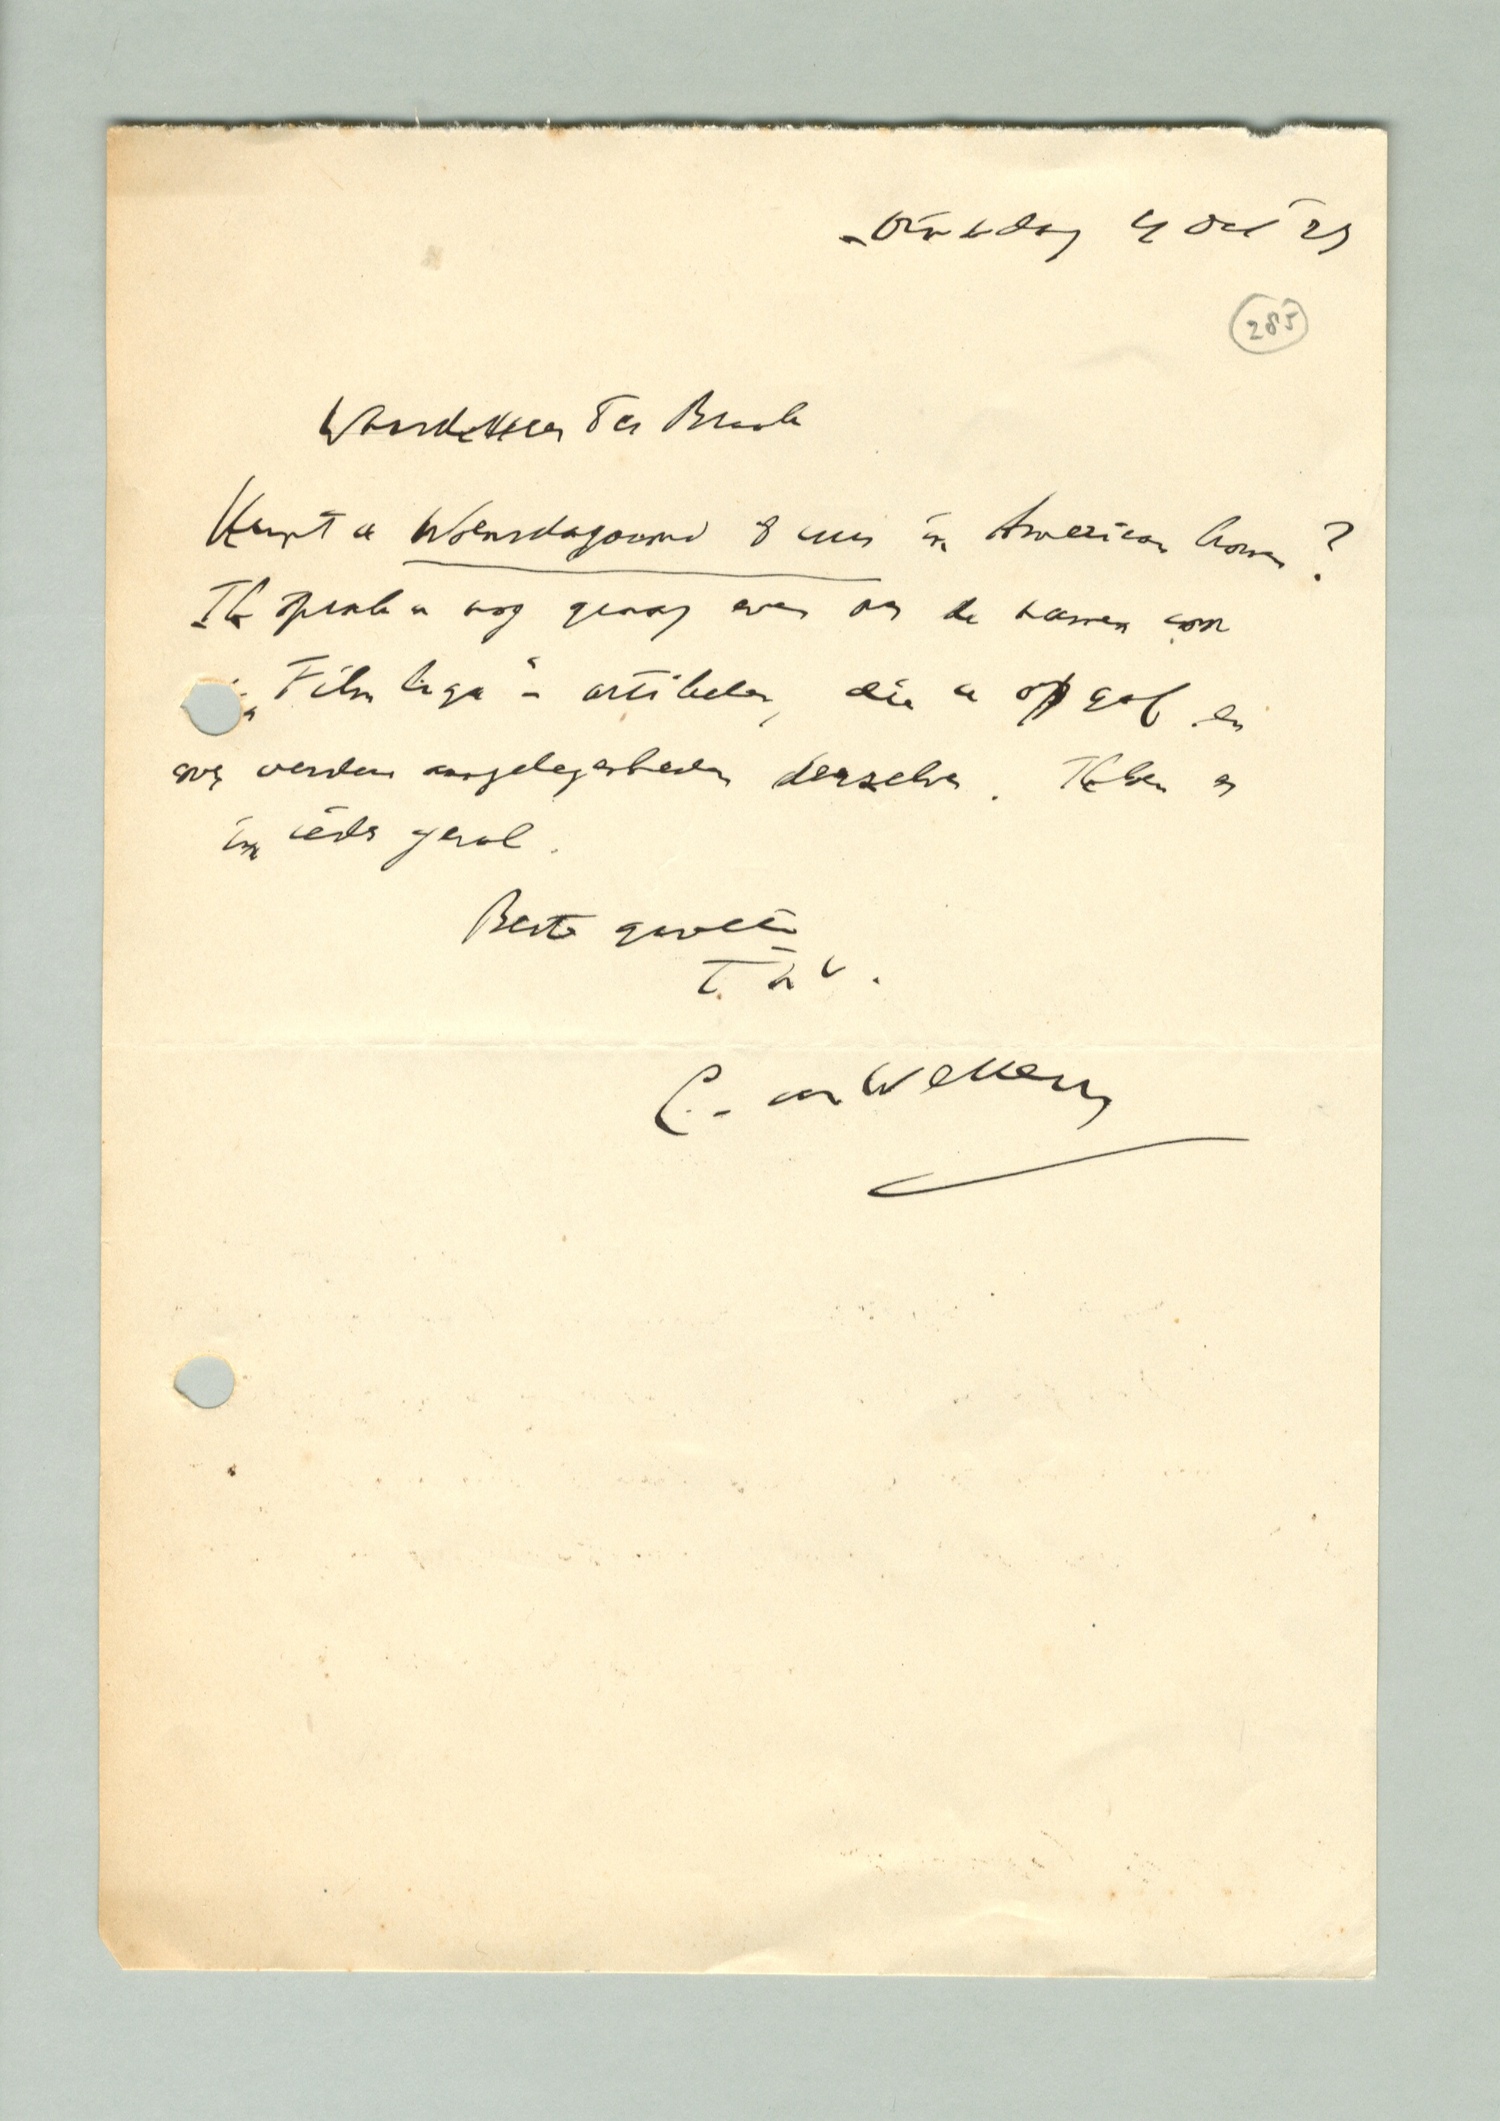 Dinsdag 4 Oct '27
285
Waarde Heer Ter Braak
Kunt u Woensdagavond 8 uur in American home ?
Ik sprak u nog graag even over de namen van
„Film liga" - artikelen, die u opgaf en
over verdere aangelegenheden derzelve. Ik ben er
in ieder geval.
Beste groeten
T. à v.
C. van Wessem